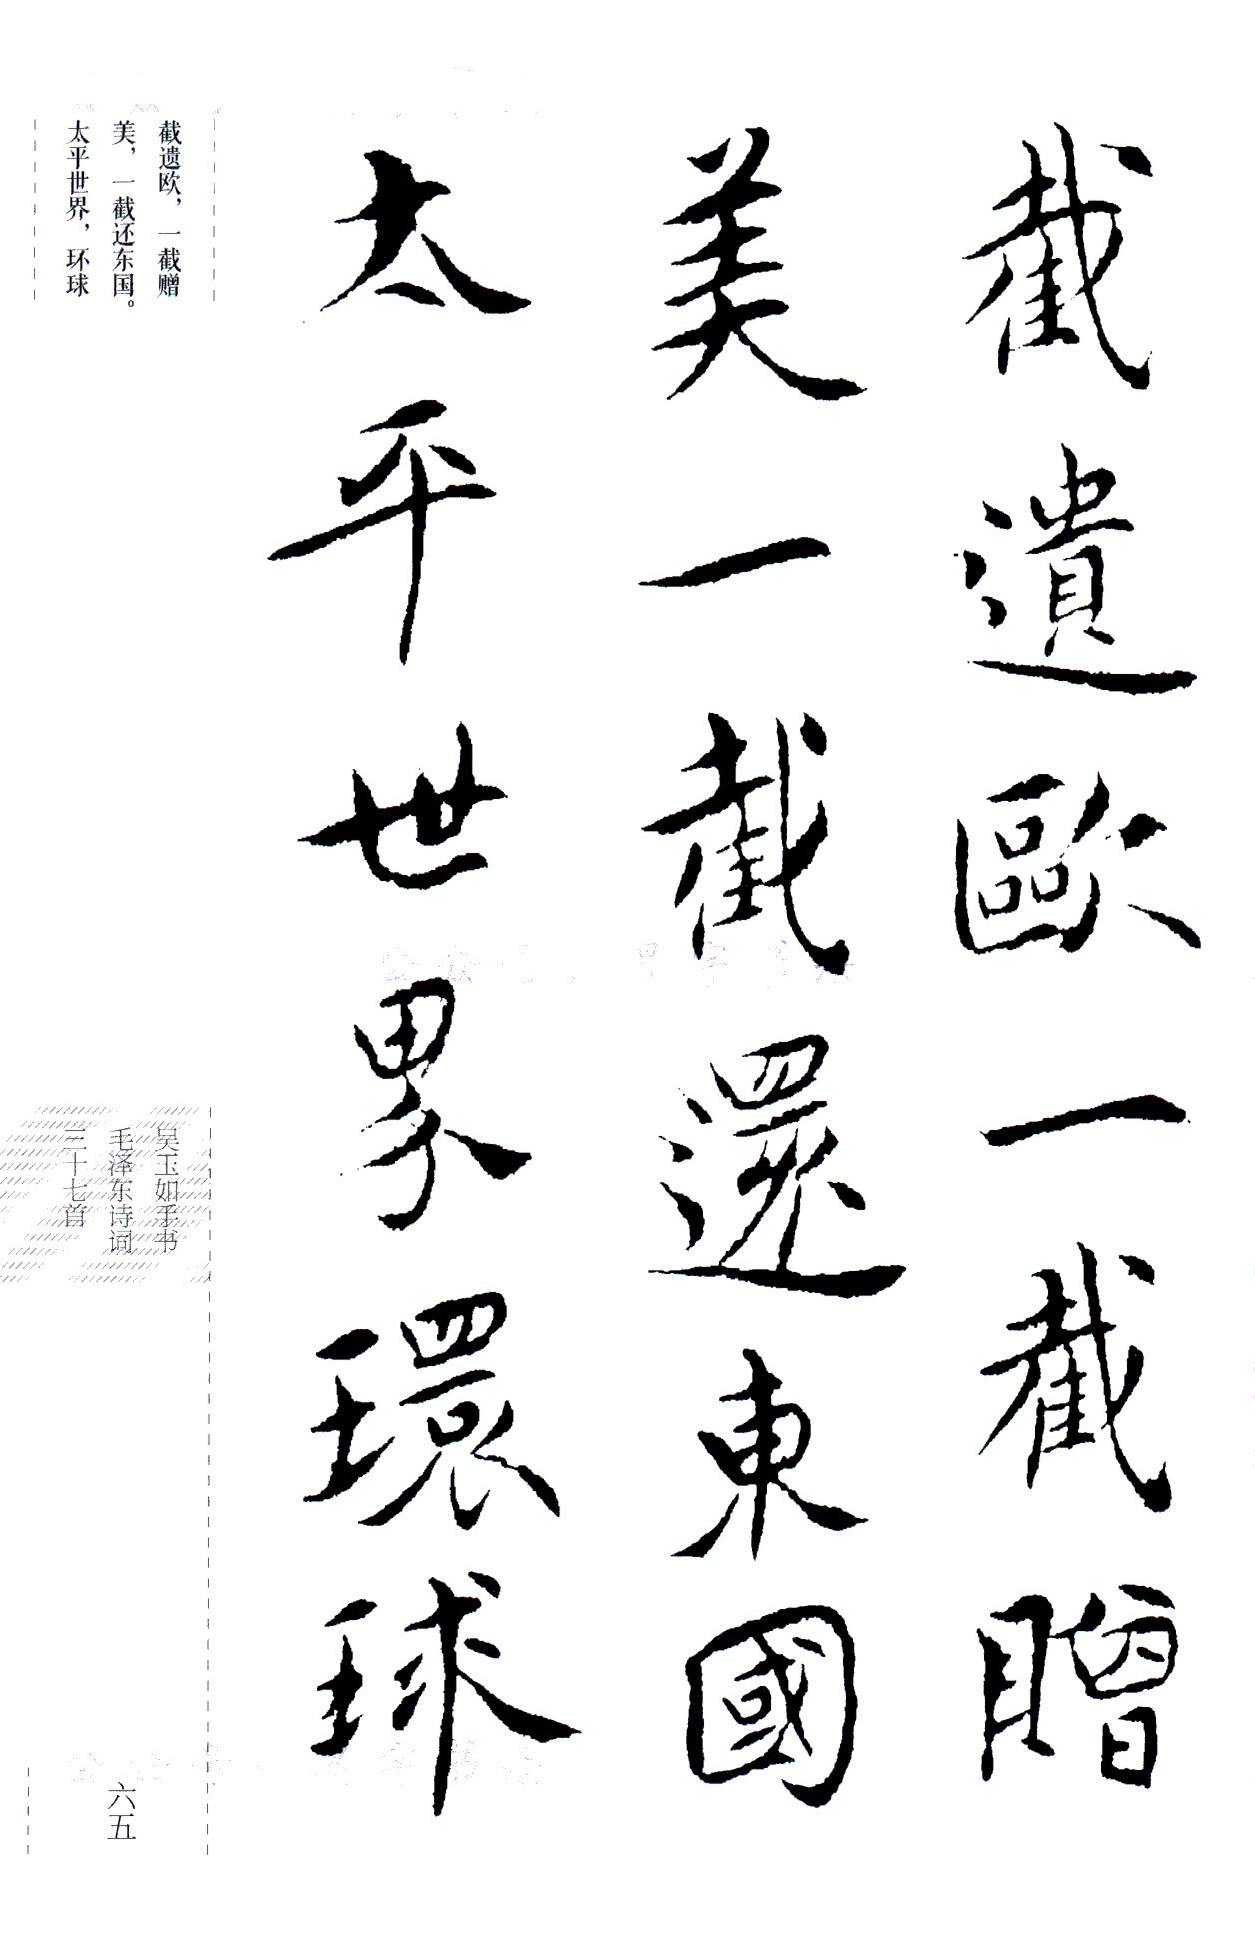 截遺歐一截贈
美一截還東國
太平世界環球
截遗欧，一截赠
美，一截还东国。
太平世界，环球
吴玉如手书
毛泽东诗词
三十七首
六五